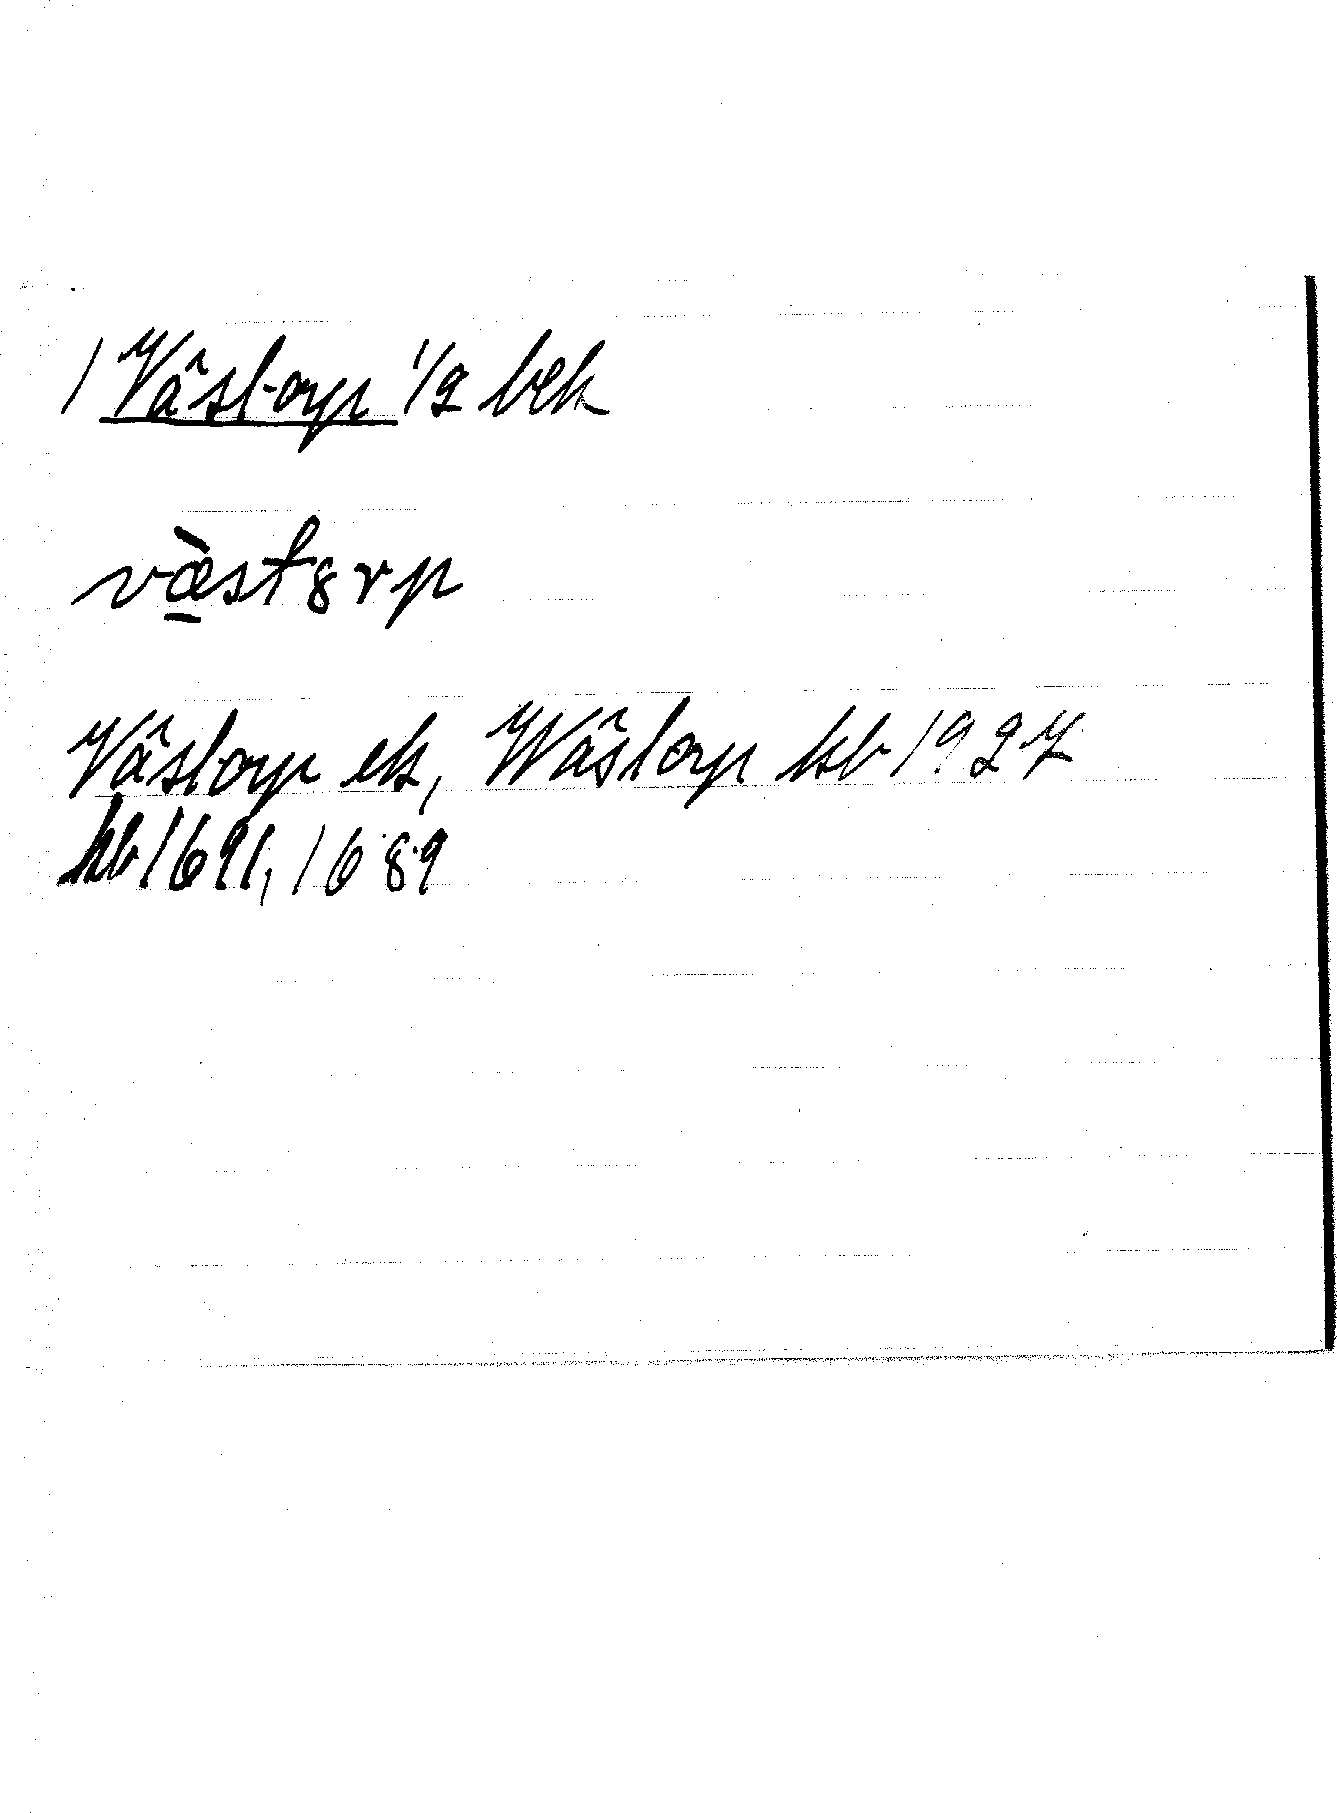 1 Västorp 1/2 bek
væ̀st8rp
Västorp ek, Wästorp kb 1927
kb 1691, 1689